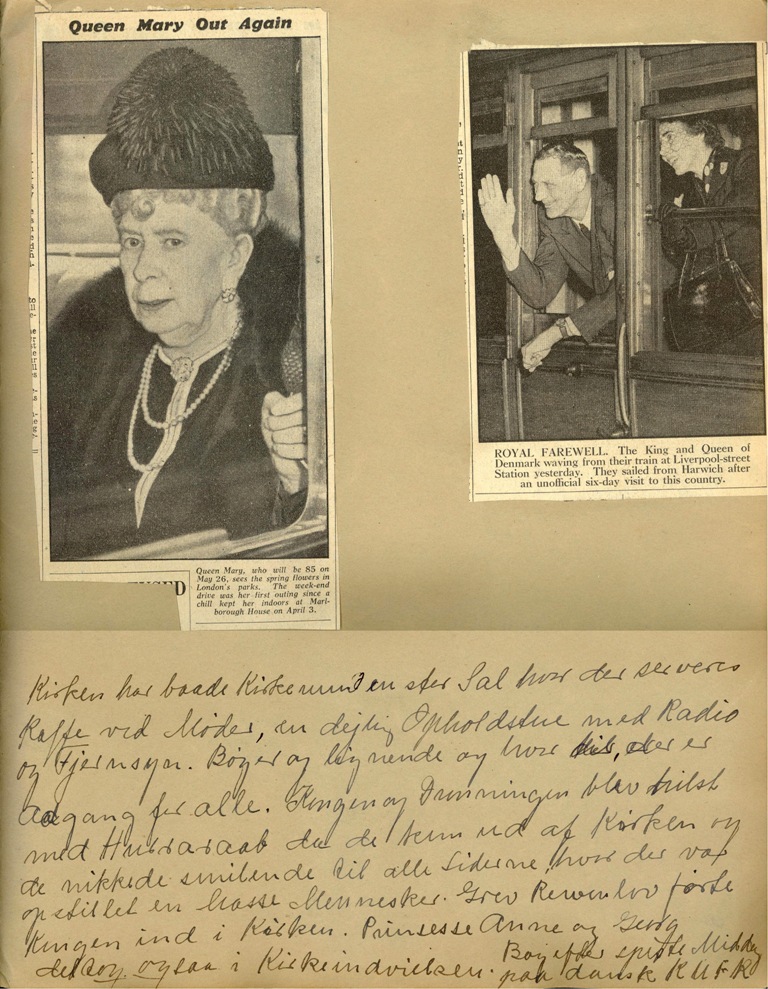 Queen Mary Out Again
Queen Mary, who will be 85 on
May 26, sees the spring flowers in
London's parks. The week-end
drive was her first outing since a
chill kept her indoors at Marl-
borough House on April 3.
ROYAL FAREWELL. The King and Queen of
Denmark waving from their train at Liverpool-street
Station yesterday. They sailed from Harwich after
an unofficial six-day visit to this country.
Kirken har baade Kirkerum en stor Sal hvor der serveres
Kaffe ved Møder, en dejlig Opholdstue med Radio
og Fjernsyn. Bøger og lignende og hvor der er
Adgang for alle. Kongen og Dronningen blev hilst
med Hurraraab da de kom ud af Kirken og
de nikkede smilende til alle Siderne, hvor der var
opstillet en Masse Mennesker. Grev Rewenlov førte
Kongen ind i Kirken. Prinsesse Anne og Georg
deltog ogsaa i Kirkeindvielsen. Bagefter spiste Middag
paa dansk K U F K